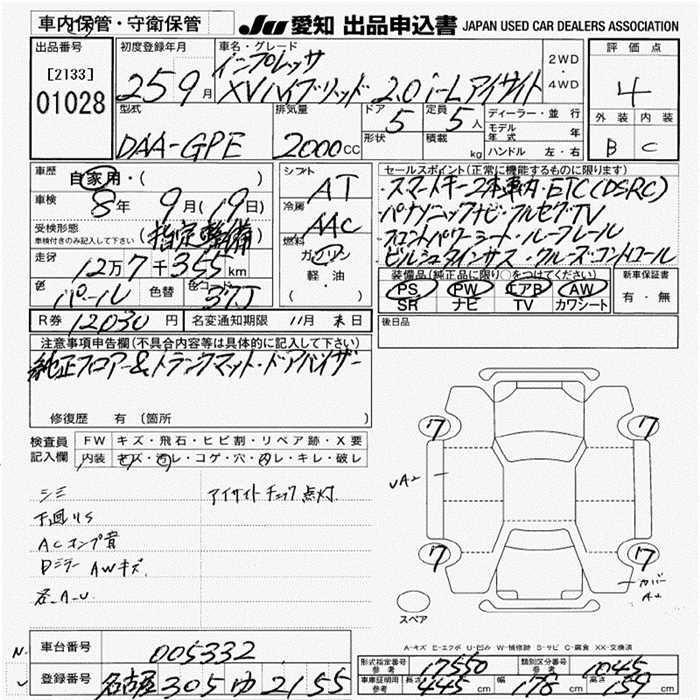 車内保管・守衛保管 JU 愛知 出品申込書 JAPAN USED CAR DEALERS ASSOCIATION
出品番号 初度登録年月 車名・グレード 評価点
[2133] 01028 25 9月 インプレッサ XVハイブリッド 2.0 i-L アイサイト 2WD・4WD 4
型式 排気量 ドア 定員 ディーラー・並行 外装 内装
DAA-GPE 2000CC 5 5人 モデル年式 年 B C
形状 積載 kg ハンドル 左・右
車歴 自家用・( ) シフト AT セールスポイント(正常に機能するものに限ります)
車検 8年 9月(19日) 冷房 AAC ・スマートキー2本車内・ETC(DSRC)
受検形態 車検付きのみ記入して下さい (指定整備) ・パナソニックナビ・フルセグTV
燃料 ガソリン 軽・油 ・フロントパワーシート・ルーフレール
走行 12万7千355km ・ビルシュタインサス・クルーズコントロール
色 パール 色替 色コード 37J 装備品(純正品に限り○をつけてください) 新車保証書
PS PW エアB AW 有・無
SR ナビ TV カワシート
R券 12030円 名変通知期限 11月末日 後日品
注意事項申告欄(不具合内容等は具体的に記入して下さい)
純正フロアー&トランクマット・ドアバイザー
修復歴 有(箇所
検査員記入欄 FW キズ・飛石・ヒビ割・リペア跡・X要
内装 キズ・汚レ・コゲ・穴・凹レ・キレ・破レ
シミ アイサイトチェック点灯
下廻りS
ACコンプ音
Dミラー AWキズ
各A-U
7 7
UA2
7 7
カバー A2
スペア
A-キズ E-エクボ U-凹み W-補修跡 S-サビ C-腐食 XX-交換済
車台番号 005332
登録番号 名古屋 305 ゆ 2155
形式指定番号 参考 17550 類別区分番号 参考 1045
車車証明用 参考 長さ 445cm 幅 178cm 高さ 159cm